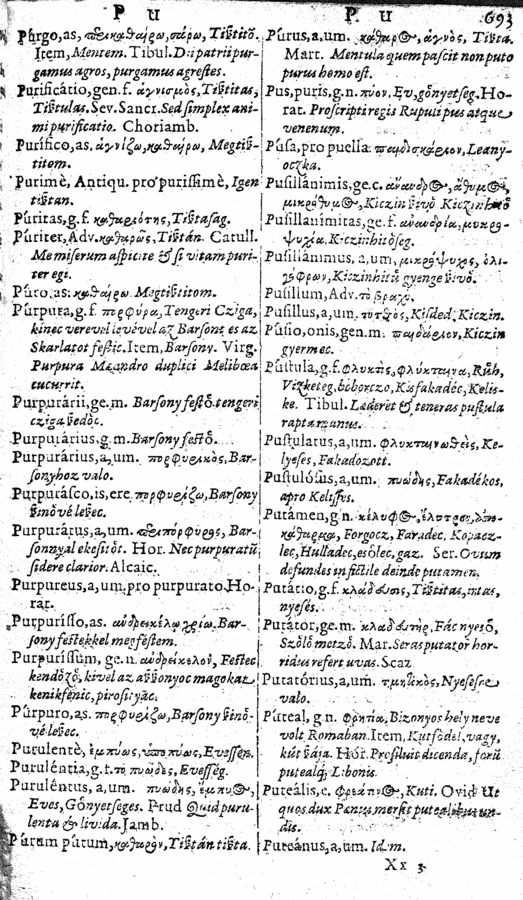 P U
P U 693
Púrgo, as, καθαίρω, Tißtitó.
Item, Mentem. Tibul. Dii patrii purgamus
agros, purgamus agrestes.
Purificátio, gen. f. ἁγνισμός, Tißtitas,
Tißtulas. Sev. Sanct. Sed simplex ani-
mi purificatio. Choriamb.
Purífico, as. ἁγνίζω, καθαίρω, Megtiß-
titom.
Purimè, Antiqu. pro purissimè, Igen
tißtan.
Púritas, g. f. καθαριότης, Tißtasag.
Púriter, Adv. καθαρῶς, Tißtán. Catull.
Me miserum aspicite & si vitam puri-
ter egi.
Púro, as. καθαίρω. Megtißtitom.
Púrpura, g. f. πορφύρα, Tengeri Cziga,
kinec verevel levével az Barsont es az
Skarlatot festic. Item, Barsony. Virg.
Purpura Mæandro duplici Melibœa
cucurrit.
Purpurárii, ge. m. Barsony festó tengeri
cziga ßedóc.
Purpurárius, g. m. Barsony festó.
Purpurárius, a, um. πορφυρικὸς, Bar-
sonyhoz valo.
Purpurásco, is, ere. πορφυρίζω, Barsony
ßinóvé leßec.
Purpurátus, a, um. Bar-
sonnyal ekesitót. Hor. Nec purpuratū
sidere clarior. Alcaic.
Purpureus, a, um, pro purpurato. Ho-
rat.
Purpurísso, as. Bar-
sony festekkel megfestem.
Purpuríssum, ge. n. Festec
kendózó, kivel az magokat
kenikfenic, pirosityac.
Púrpuro, as. πορφυρίζω, Barsony ßinó-
vé leßec.
Purulentè, ἐμπύως, ὑποπύως, Evessen.
Puruléntia, g. f. τὸ πυῶδες, Evesség.
Puruléntus, a, um. πυώδης, ἔμπυος,
Eves, Gónyetseges. Prud. Quid puru-
lenta & livida. Jamb.
Púrum pútum, καθαρὸν, Tißtán tißta.
Púrus, a, um. καθαρὸς, ἁγνὸς, Tißta.
Mart. Mentula quem pascit non puto
purus homo est.
Pus, puris, g. n. πύον. Ev, gónyetseg. Ho-
rat. Proscripti regis Rupili pus atque
venenum.
Púsa, pro puella. παιδισκάριον, Leány-
oczka.
Pusillánimis, ge. c. ἄνανδρος, ἄθυμος,
μικρόθυμος, Kiczin ßivó Kiczinhitó
Pusillanímitas, ge. f. ἀνανδρία, μικρο-
ψυχία, Kiczinhitóseg.
Pusillánimus, a, um, μικρόψυχος, ὀλι-
γόφρων, Kiczinhitú gyenge ßivó.
Pusíllum, Adv. τὸ βραχύ.
Pusíllus, a, um. τυτθὸς, Kisded, Kiczin.
Púsio, onis, gen. m. παιδάριον, Kiczin
gyermec.
Pústula, g. f. φλυκτὶς, φλύκταινα, Rúh,
Vizketeg, boborczo, Kisakadéc, Kelis-
ke. Tibul. Læderet & teneras pustula
rapta manus.
Pustulatus, a, um. φλυκταινωθεὶς, Ke-
lyeses, Fakadozott.
Pustulósus, a, um. πυώδης, Fakadékos,
apro Kelisses.
Putámen, g. n. κέλυφος, ἔλυτρον,
Forgocz, Faradec, Kopacz-
lec, Hulladec, esólec, gaz. Ser. Ovum
defundes in fictile deinde putamen.
Putátio, g. f. κλάδευσις, Tißtitas, intas,
nyesés.
Putátor, ge. m. κλαδευτὴρ, Fác nyesó,
Szóló metzó. Mar. Seras putator hor-
ridus refert uvas. Scaz.
Putatórius, a, um. τμητικὸς, Nyesesre
valo.
Púteal, g. n. Bizonyos hely neve
volt Romaban. Item, Kutfódel, vagy,
kút ßája. Hor. Prosiluit dicenda, forū
putealq; Libonis.
Puteális, e. Kuti. Ovid. Ut
quos dux Pænus mersit putealibus un-
dis.
Puteánus, a, um. Idem.
Xx 3